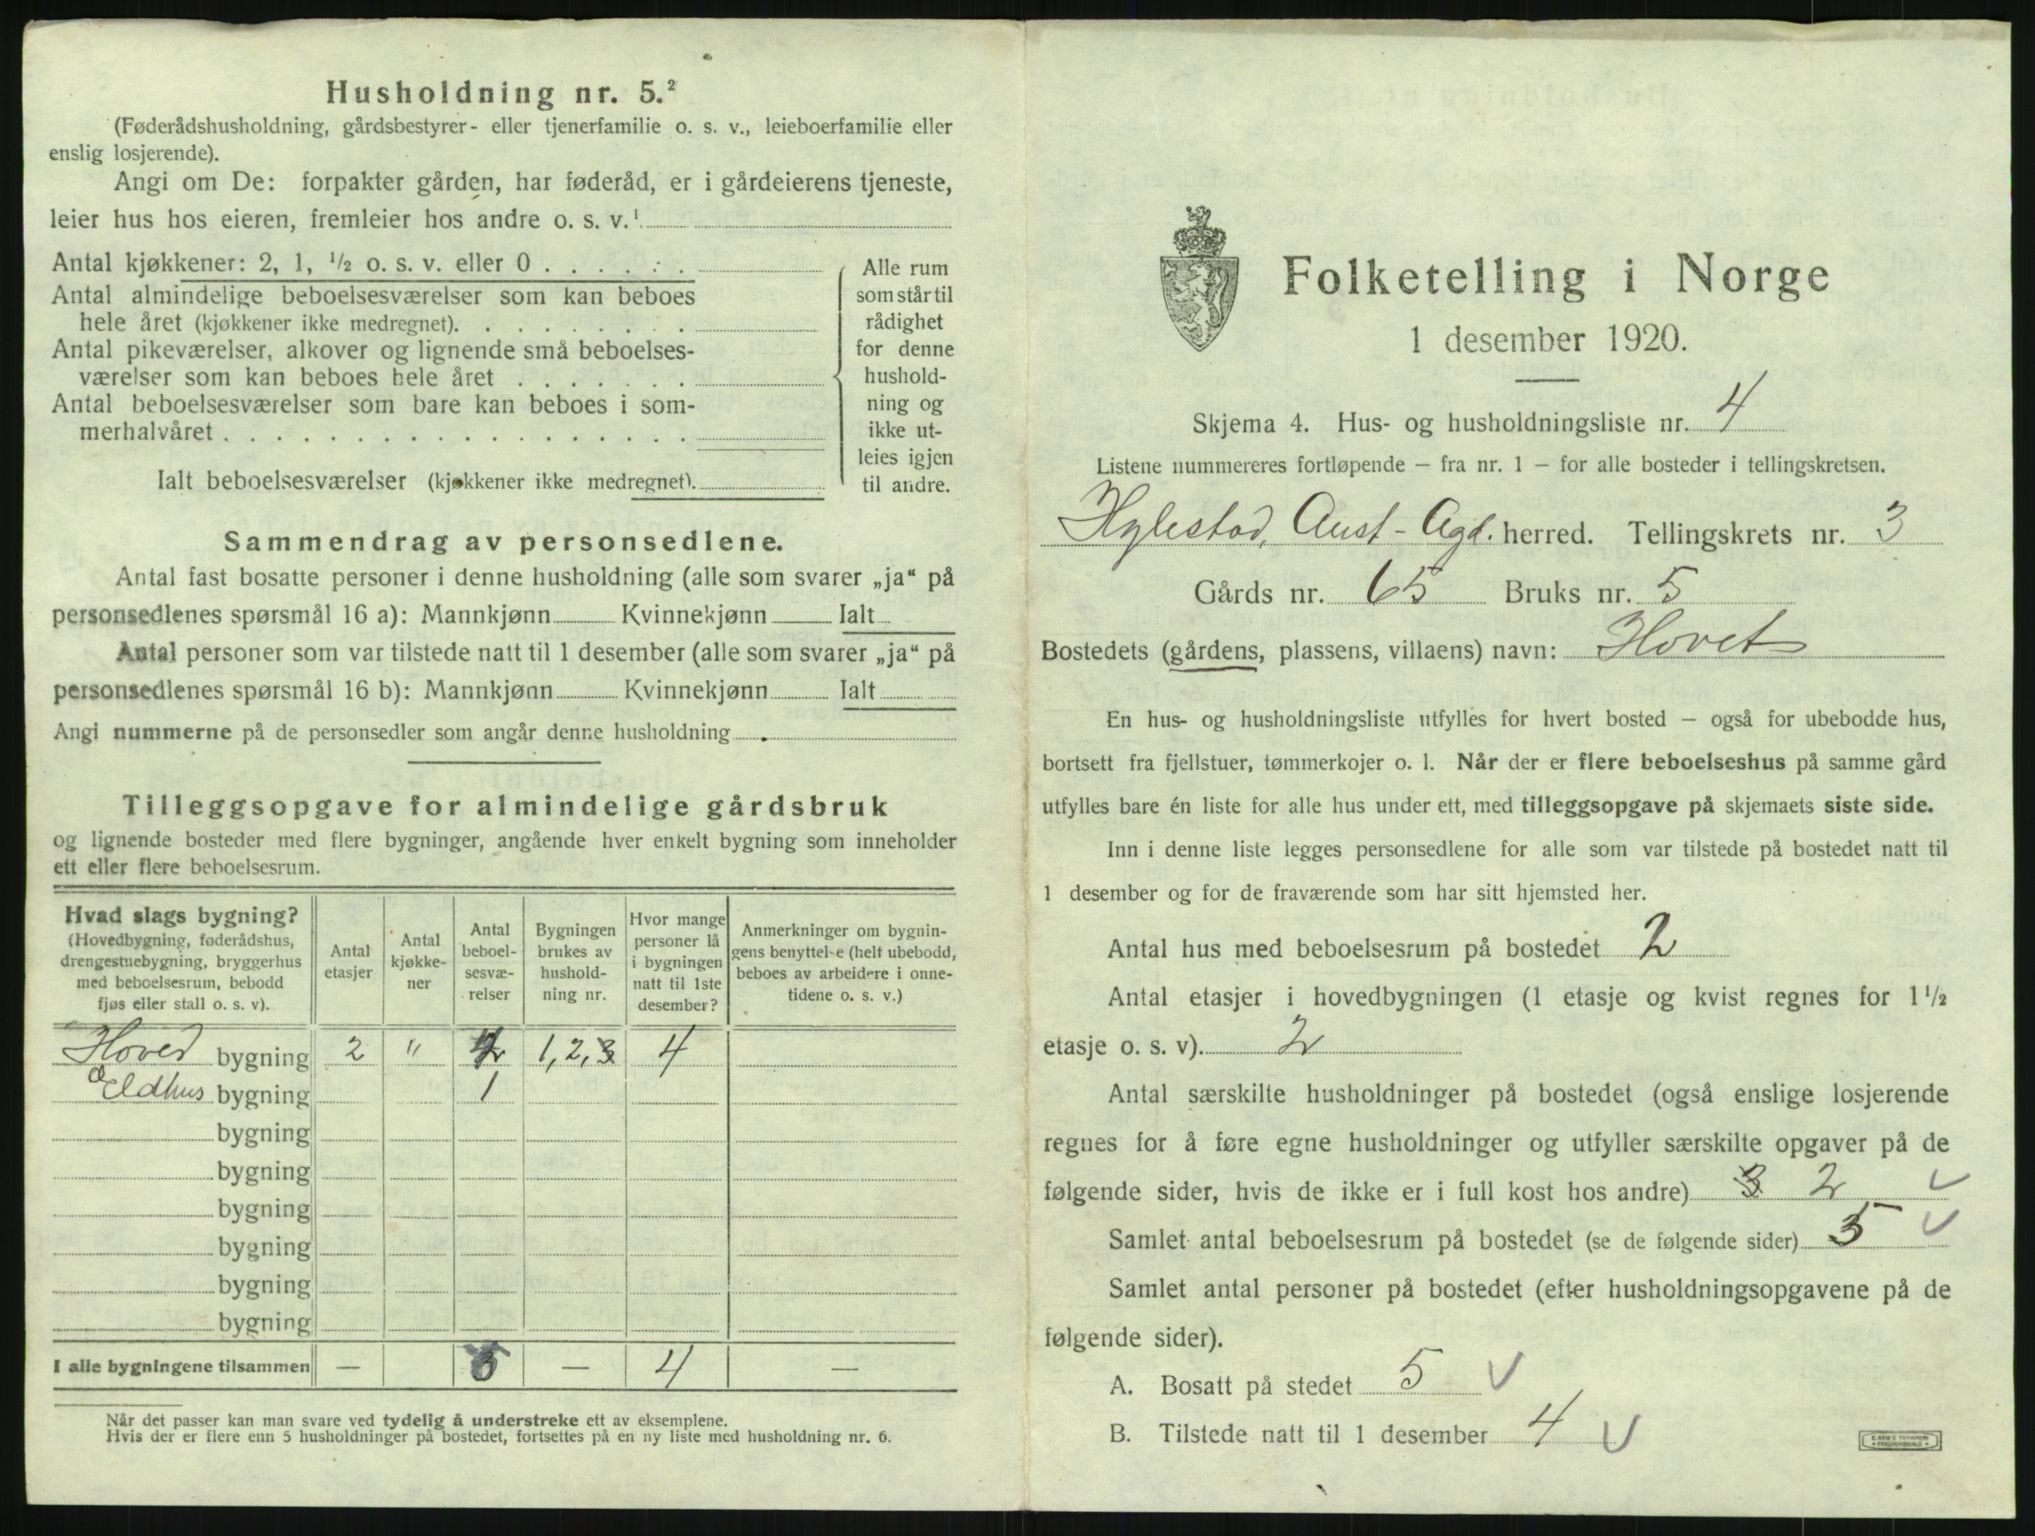 Husholdning nr. 5.²
(Føderådshusholdning, gårdsbestyrer- eller tjenerfamilie o. s. v., leieboerfamilie eller
enslig losjerende).
Angi om De: forpakter gården, har føderåd, er i gårdeierens tjeneste,
leier hus hos eieren, fremleier hos andre o. s. v.¹
Antal kjøkkener: 2, 1, ½ o. s. v. eller 0 . . . . . .
Antal almindelige beboelsesværelser som kan beboes
hele året (kjøkkener ikke medregnet). . . . . . . . .
Antal pikeværelser, alkover og lignende små beboelses-
værelser som kan beboes hele året . . . . . . .
Antal beboelsesværelser som bare kan beboes i som-
merhalvåret . . . . . . . . . . . . . . . . . .
Ialt beboelsesværelser (kjøkkener ikke medregnet).
Alle rum
som står til
rådighet
for denne
hushold-
ning og
ikke ut-
leies igjen
til andre.
Sammendrag av personsedlene.
Antal fast bosatte personer i denne husholdning (alle som svarer „ja“ på
personsedlenes spørsmål 16 a): Mannkjønn Kvinnekjønn Ialt
Antal personer som var tilstede natt til 1 desember (alle som svarer „ja“ på
personsedlenes spørsmål 16 b): Mannkjønn Kvinnekjønn Ialt
Angi nummerne på de personsedler som angår denne husholdning
Tilleggsopgave for almindelige gårdsbruk
og lignende bosteder med flere bygninger, angående hver enkelt bygning som inneholder
ett eller flere beboelsesrum.
Hvad slags bygning?
(Hovedbygning, føderådshus,
drengestuebygning, bryggerhus
med beboelsesrum, bebodd
fjøs eller stall o. s. v).
Antal
etasjer
Antal
kjøkke-
ner
Antal
beboel-
sesvæ-
relser
Bygningen
brukes av
hushold-
ning nr.
Hvor mange
personer lå
i bygningen
natt til 1ste
desember?
Anmerkninger om bygnin-
gens benyttelse (helt ubebodd,
beboes av arbeidere i onne-
tidene o. s. v.)
Hoved bygning 2 " 1, 2, 3 4
Eldhus bygning 1
bygning
bygning
bygning
bygning
bygning
bygning
I alle bygningene tilsammen — — 4 —
Når det passer kan man svare ved tydelig å understreke ett av eksemplene.
Hvis der er flere enn 5 husholdninger på bostedet, fortsettes på en ny liste med husholdning nr. 6.
Folketelling i Norge
1 desember 1920.
Skjema 4. Hus- og husholdningsliste nr. 4
Listene nummereres fortløpende – fra nr. 1 – for alle bosteder i tellingskretsen.
Hylestad, Aust-Agd. herred. Tellingskrets nr. 3
Gårds nr. 65 Bruks nr. 5
Bostedets (gårdens, plassens, villaens) navn: Hovet
En hus- og husholdningsliste utfylles for hvert bosted – også for ubebodde hus,
bortsett fra fjellstuer, tømmerkojer o. l. Når der er flere beboelseshus på samme gård
utfylles bare én liste for alle hus under ett, med tilleggsopgave på skjemaets siste side.
Inn i denne liste legges personsedlene for alle som var tilstede på bostedet natt til
1 desember og for de fraværende som har sitt hjemsted her.
Antal hus med beboelsesrum på bostedet 2
Antal etasjer i hovedbygningen (1 etasje og kvist regnes for 1½
etasje o. s. v). 2
Antal særskilte husholdninger på bostedet (også enslige losjerende
regnes for å føre egne husholdninger og utfyller særskilte opgaver på de
følgende sider, hvis de ikke er i full kost hos andre) 3 2
Samlet antal beboelsesrum på bostedet (se de følgende sider) 5
Samlet antal personer på bostedet (efter husholdningsopgavene på de
følgende sider).
A. Bosatt på stedet 5
B. Tilstede natt til 1 desember 4